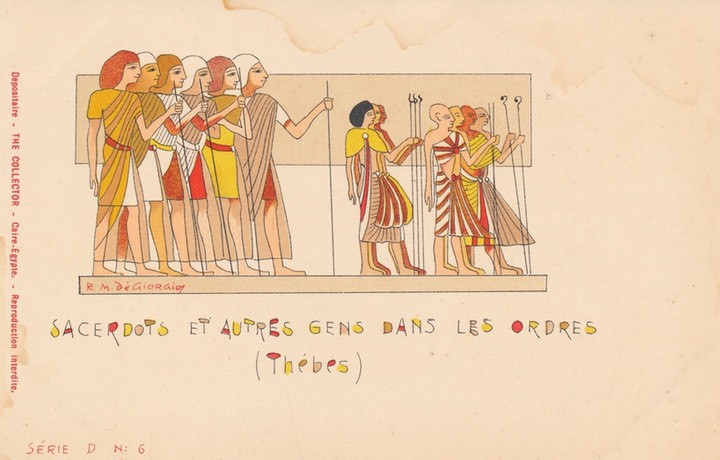 Depositaire - THE COLLECTOR - Caire-Egypte. - Reproduction interdite.
R. M. dé GIORGIO
SACERDOTS ET AUTRES GENS DANS LES ORDRES
(Thébes)
SÉRIE D N: 6